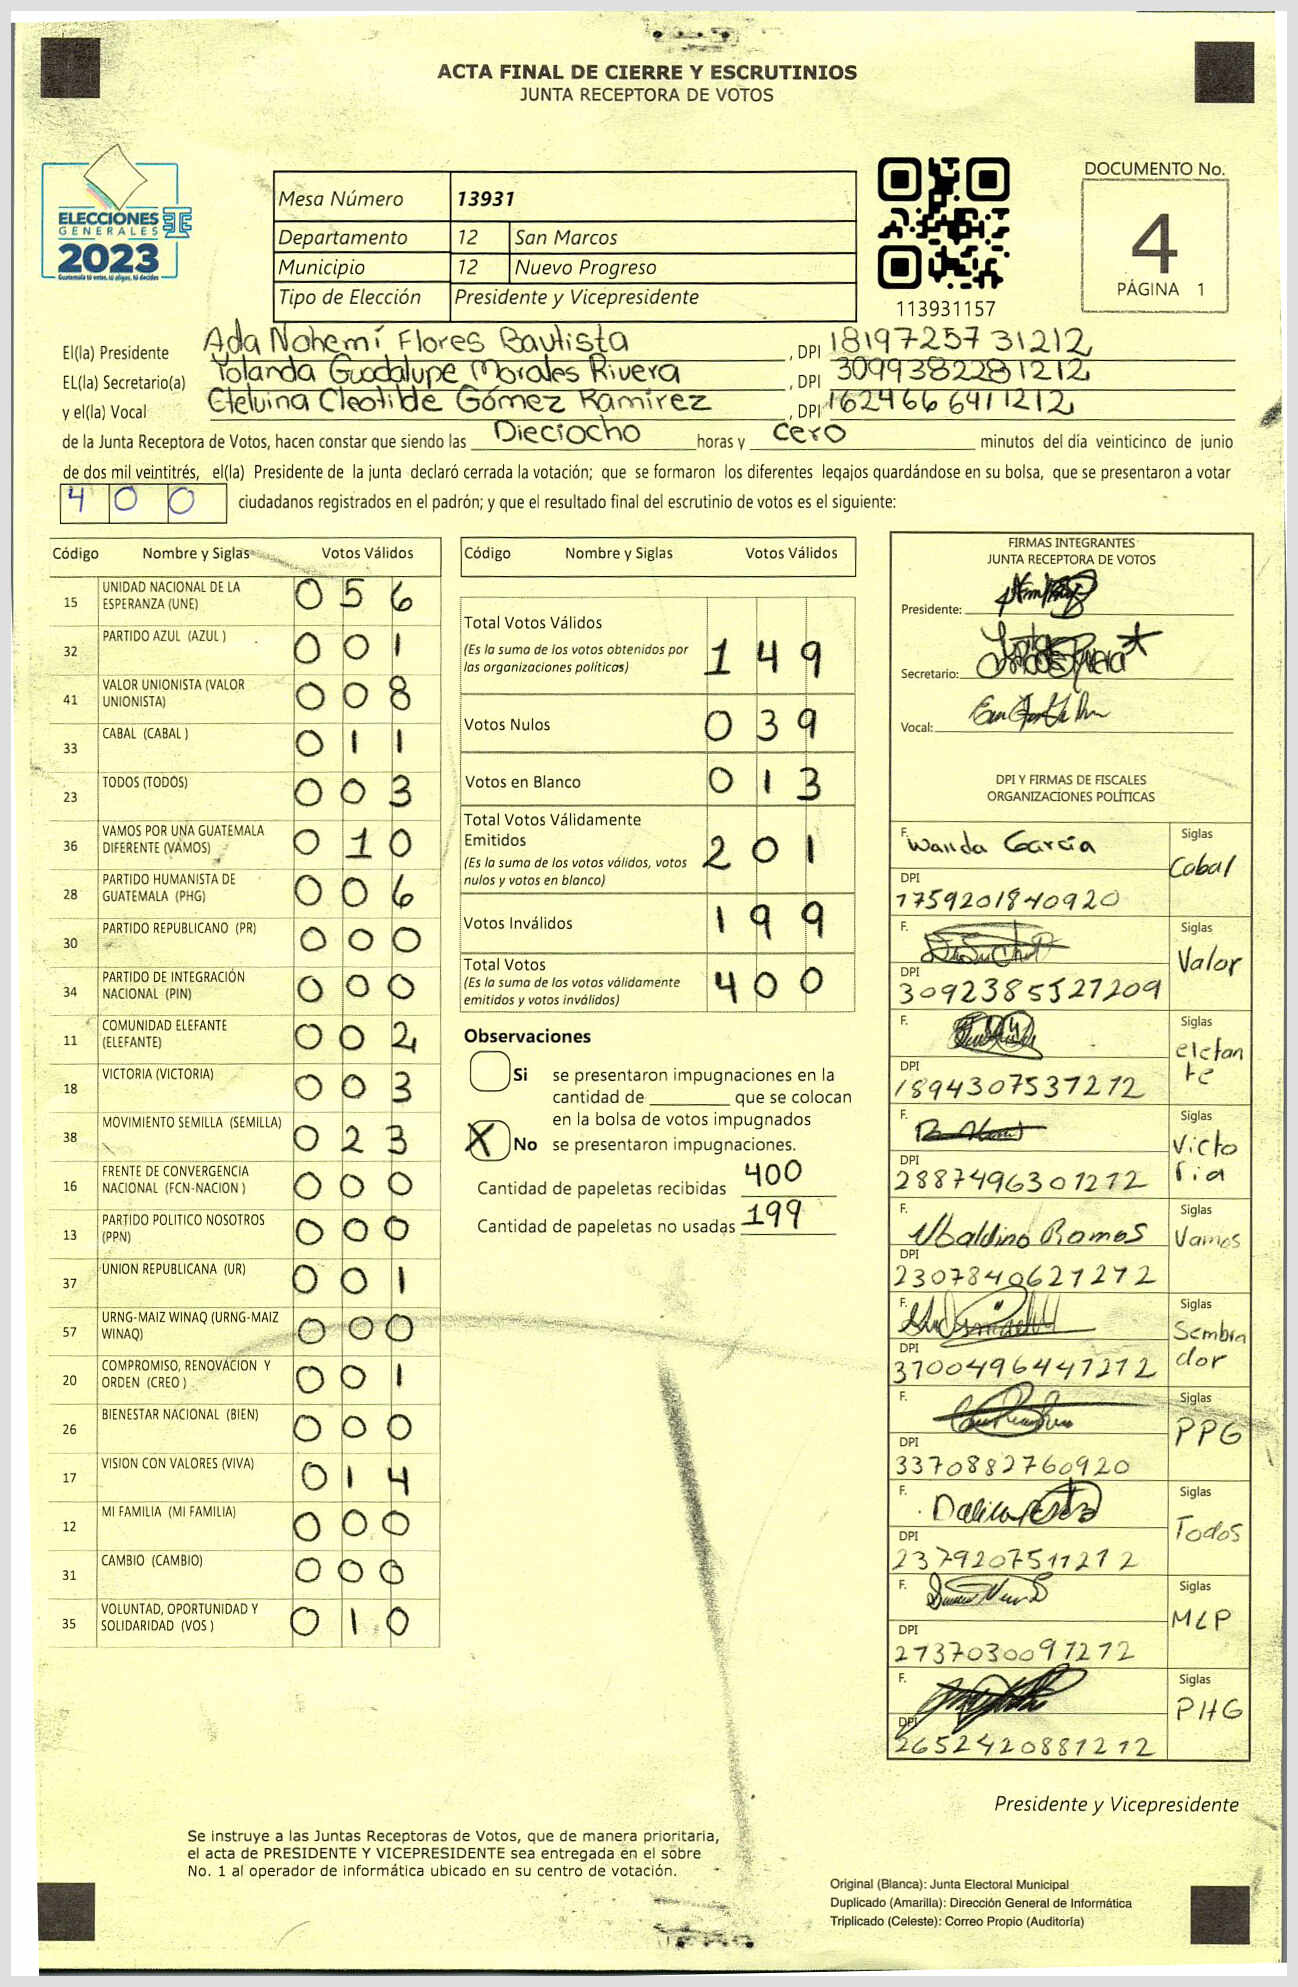 ACTA FINAL DE CIERRE Y ESCRUTINIOS
JUNTA RECEPTORA DE VOTOS
ELECCIONES
GENERALES
2023
Guatemala tú votas, tú eliges, tú decides
Mesa Número 13931
Departamento 12 San Marcos
Municipio 12 Nuevo Progreso
Tipo de Elección Presidente y Vicepresidente
113931157
DOCUMENTO No.
4
PÁGINA 1
El(la) Presidente Ada Nohemí Flores Bautista , DPI 1819725731212
EL(la) Secretario(a) Yolanda Guadalupe Morales Rivera , DPI 3099382281212
y el(la) Vocal Etelvina Cleotilde Gómez Ramírez , DPI 1624666411212
de la Junta Receptora de Votos, hacen constar que siendo las Dieciocho horas y cero minutos del día veinticinco de junio
de dos mil veintitrés, el(la) Presidente de la junta declaró cerrada la votación; que se formaron los diferentes legajos quardándose en su bolsa, que se presentaron a votar
400 ciudadanos registrados en el padrón; y que el resultado final del escrutinio de votos es el siguiente:
Código Nombre y Siglas Votos Válidos
15 UNIDAD NACIONAL DE LA ESPERANZA (UNE) 056
32 PARTIDO AZUL (AZUL ) 001
41 VALOR UNIONISTA (VALOR UNIONISTA) 008
33 CABAL (CABAL ) 011
23 TODOS (TODOS) 003
36 VAMOS POR UNA GUATEMALA DIFERENTE (VAMOS) 010
28 PARTIDO HUMANISTA DE GUATEMALA (PHG) 006
30 PARTIDO REPUBLICANO (PR) 000
34 PARTIDO DE INTEGRACIÓN NACIONAL (PIN) 000
11 COMUNIDAD ELEFANTE (ELEFANTE) 002
18 VICTORIA (VICTORIA) 003
38 MOVIMIENTO SEMILLA (SEMILLA) 023
16 FRENTE DE CONVERGENCIA NACIONAL (FCN-NACION ) 000
13 PARTIDO POLITICO NOSOTROS (PPN) 000
37 UNION REPUBLICANA (UR) 001
57 URNG-MAIZ WINAQ (URNG-MAIZ WINAQ) 000
20 COMPROMISO, RENOVACION Y ORDEN (CREO ) 001
26 BIENESTAR NACIONAL (BIEN) 000
17 VISION CON VALORES (VIVA) 014
12 MI FAMILIA (MI FAMILIA) 000
31 CAMBIO (CAMBIO) 000
35 VOLUNTAD, OPORTUNIDAD Y SOLIDARIDAD (VOS ) 010
Código Nombre y Siglas Votos Válidos
Total Votos Válidos
(Es la suma de los votos obtenidos por las organizaciones políticas) 149
Votos Nulos 039
Votos en Blanco 013
Total Votos Válidamente Emitidos
(Es la suma de los votos válidos, votos nulos y votos en blanco) 201
Votos Inválidos 199
Total Votos
(Es la suma de los votos válidamente emitidos y votos inválidos) 400
Observaciones
Si se presentaron impugnaciones en la
cantidad de ________ que se colocan
en la bolsa de votos impugnados
X No se presentaron impugnaciones.
Cantidad de papeletas recibidas 400
Cantidad de papeletas no usadas 199
FIRMAS INTEGRANTES
JUNTA RECEPTORA DE VOTOS
Presidente:
Secretario:
Vocal:
DPI Y FIRMAS DE FISCALES
ORGANIZACIONES POLÍTICAS
F. Wanda García Siglas Cabal
DPI 1759201840920
F. Siglas Valor
DPI 3092385527209
F. Siglas elefante
DPI 1894307531212
F. Siglas Victoria
DPI 2887496301212
F. Ubaldino Ramos Siglas Vamos
DPI 2307840621212
F. Siglas Sembrador
DPI 3700496441212
F. Siglas PPG
DPI 3370882760920
F. Siglas Todos
DPI 2379207511212
F. Siglas MLP
DPI 2737030091212
F. Siglas PHG
DPI 2652420881212
Presidente y Vicepresidente
Se instruye a las Juntas Receptoras de Votos, que de manera prioritaria,
el acta de PRESIDENTE Y VICEPRESIDENTE sea entregada en el sobre
No. 1 al operador de informática ubicado en su centro de votación.
Original (Blanca): Junta Electoral Municipal
Duplicado (Amarilla): Dirección General de Informática
Triplicado (Celeste): Correo Propio (Auditoría)